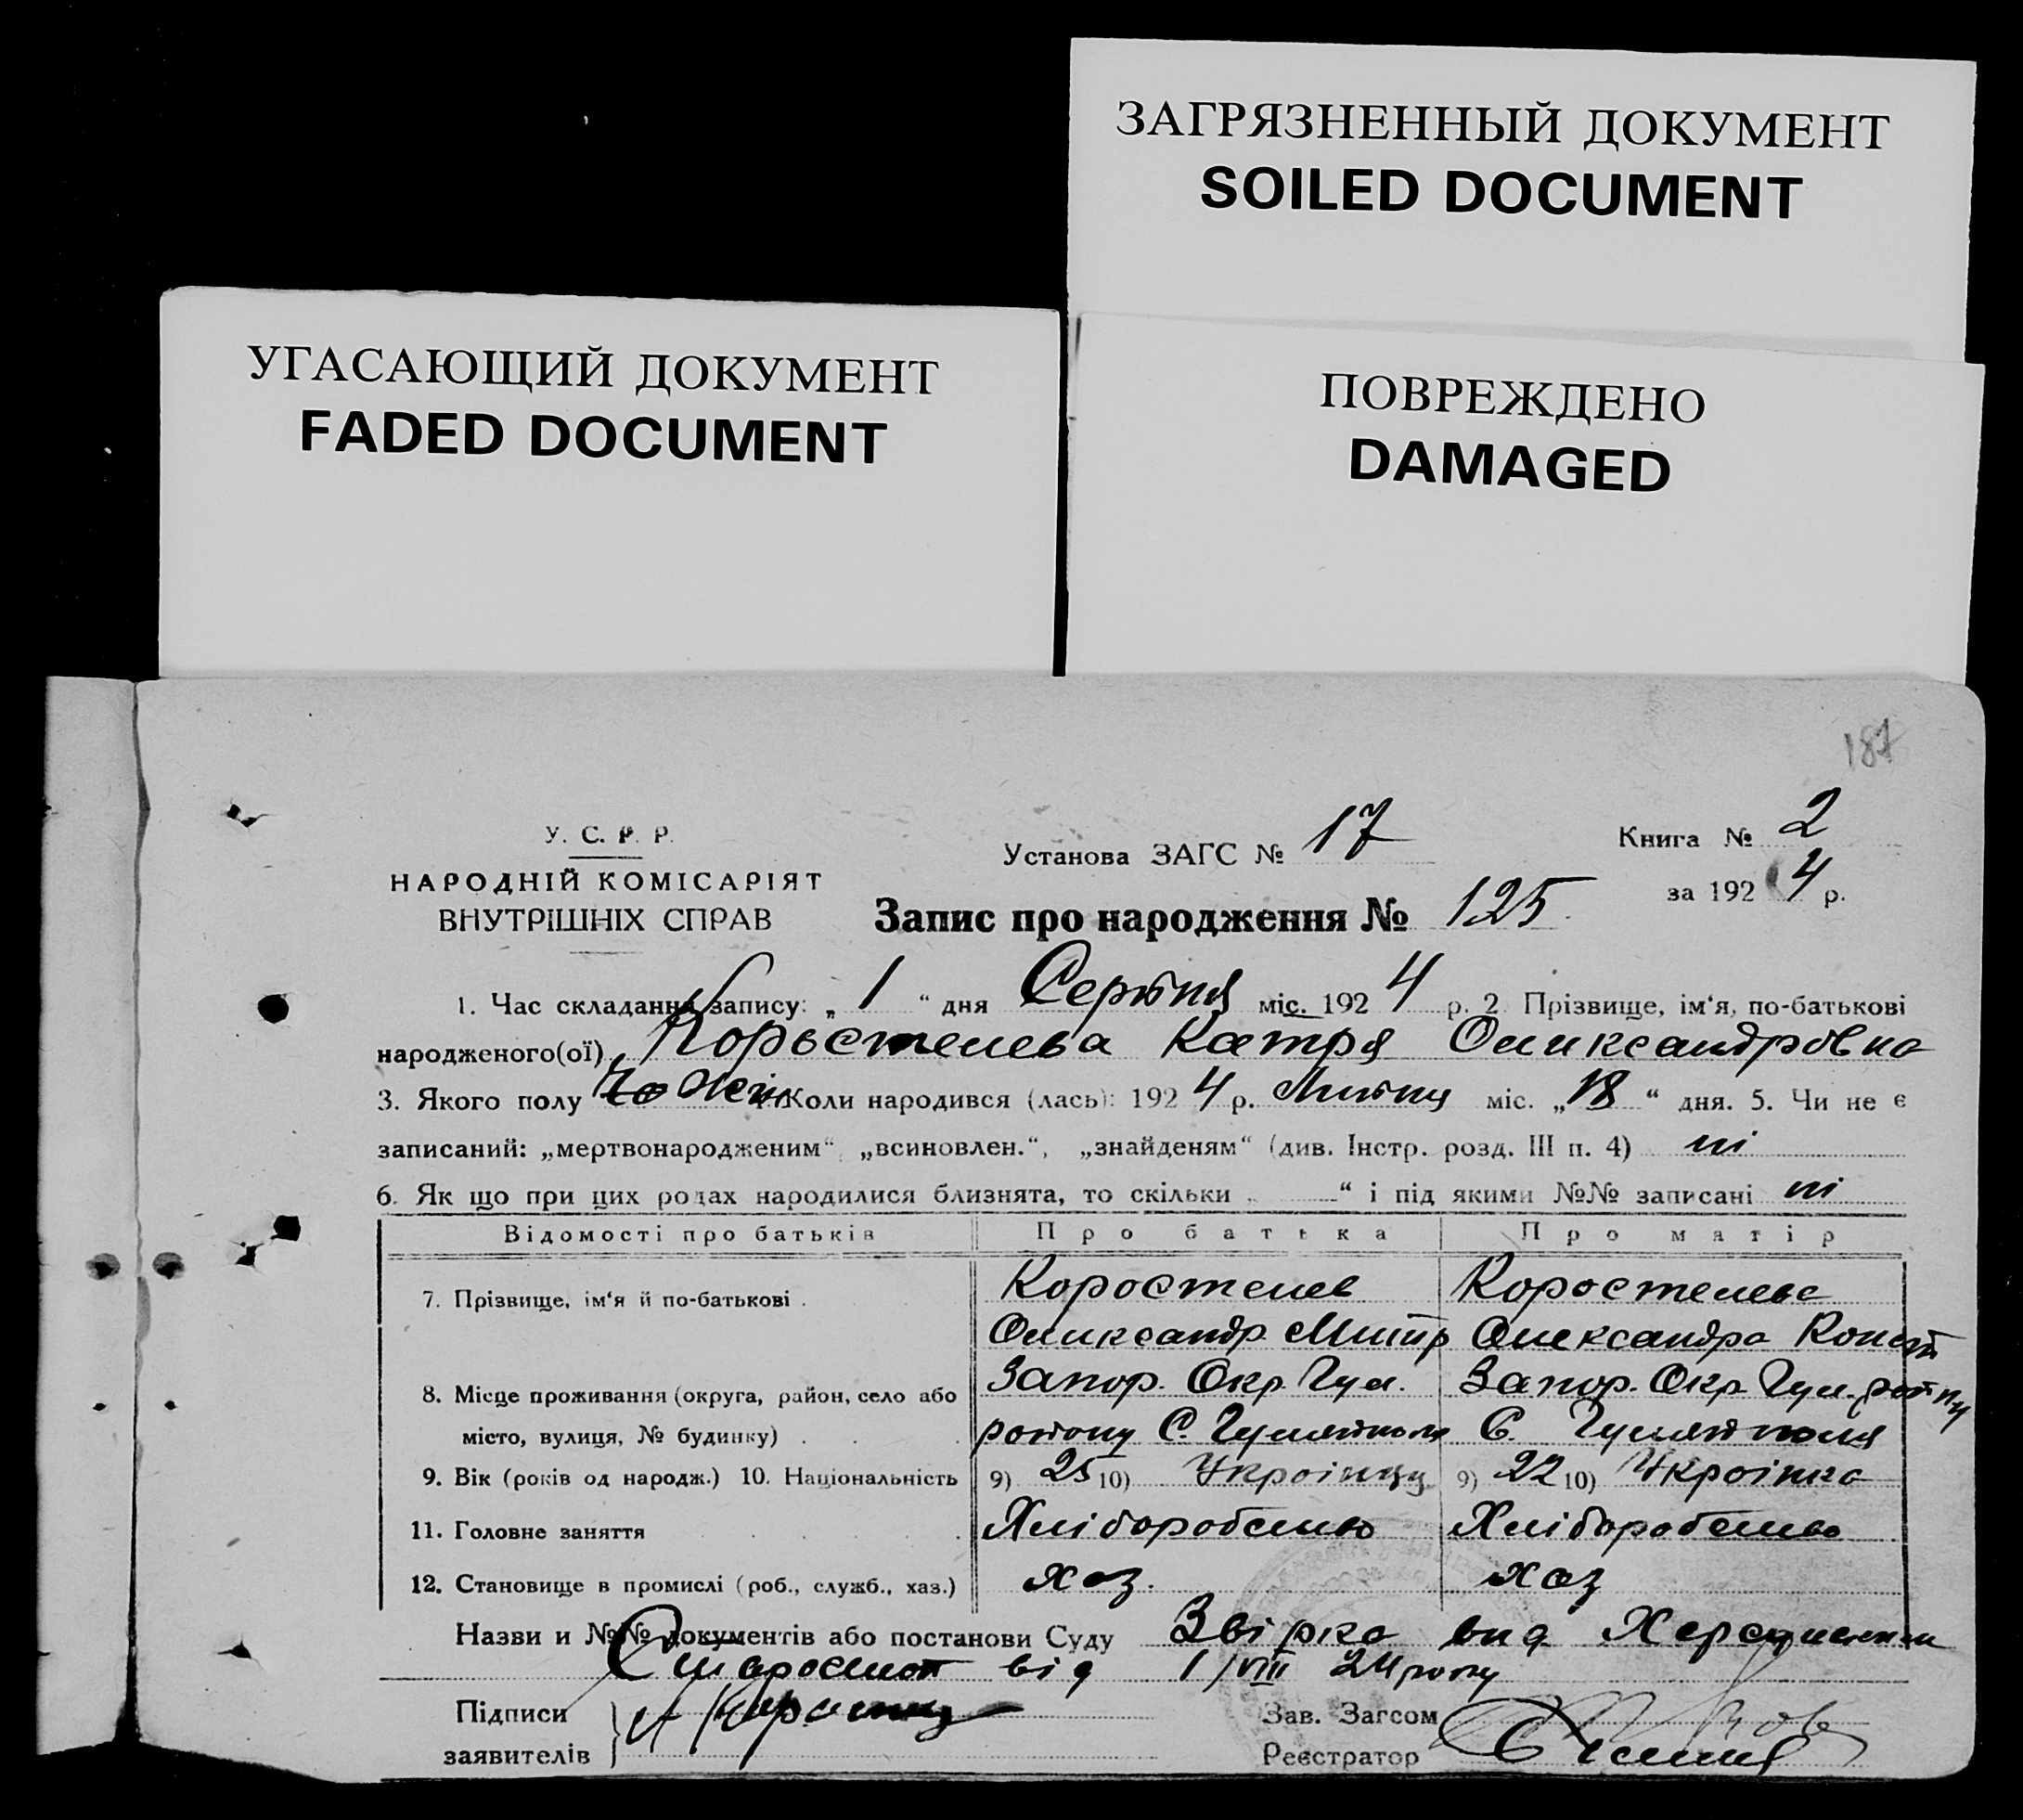 ЗАГРЯЗНЕННЫЙ ДОКУМЕНТ
SOILED DOCUMENT
УГАСАЮЩИЙ ДОКУМЕНТ
FADED DOCUMENT
ПОВРЕЖДЕНО
DAMAGED
187
У. С. Р. Р.
НАРОДНІЙ КОМІСАРІЯТ
ВНУТРІШНІХ СПРАВ
Установа ЗАГС № 17
Книга № 2
за 1924 р.
Запис про народження № 125
1. Час складання запису: „ 1 “ дня Серпня міс. 1924 р. 2 Прізвище, ім‘я, по-батькові
народженого(ої) Коростелева Катря Олександрівна
3. Якого полу жін. Коли народився (лась): 1924 р. Липня міс. „18“ дня. 5. Чи не є
записаний: „мертвонародженим“, „всиновлен.“, „знайденям“ (див. Інстр. розд. III п. 4) ні
6. Як що при цих родах народилися близнята, то скільки „ “ і під якими №№ записані ні
Відомості про батьків Про батька Про матір
7. Прізвище, ім‘я й по-батькові . Коростелев Коростелева
Олександр Митр Олександра Конст
8. Місце проживання (округа, район, село або Запор. Окр. Гул. Запор. Окр. Гул. району
місто, вулиця, № будинку) . . . району С. Гуляйполя С. Гуляйполя
9. Вік (років од народж.) 10. Національність 9) 25 10) Украінец 9) 22 10) Украінка
11. Головне заняття . . . Хліборобство Хліборобство
12. Становище в промислі (роб., служб., хаз.) хаз. хаз
Назви и №№ документів або постанови Суду Звірка вид. Херсонским
Старостат від 1/VIII 24 року
Підписи
заявителів
Зав. Загсом
Реєстратор